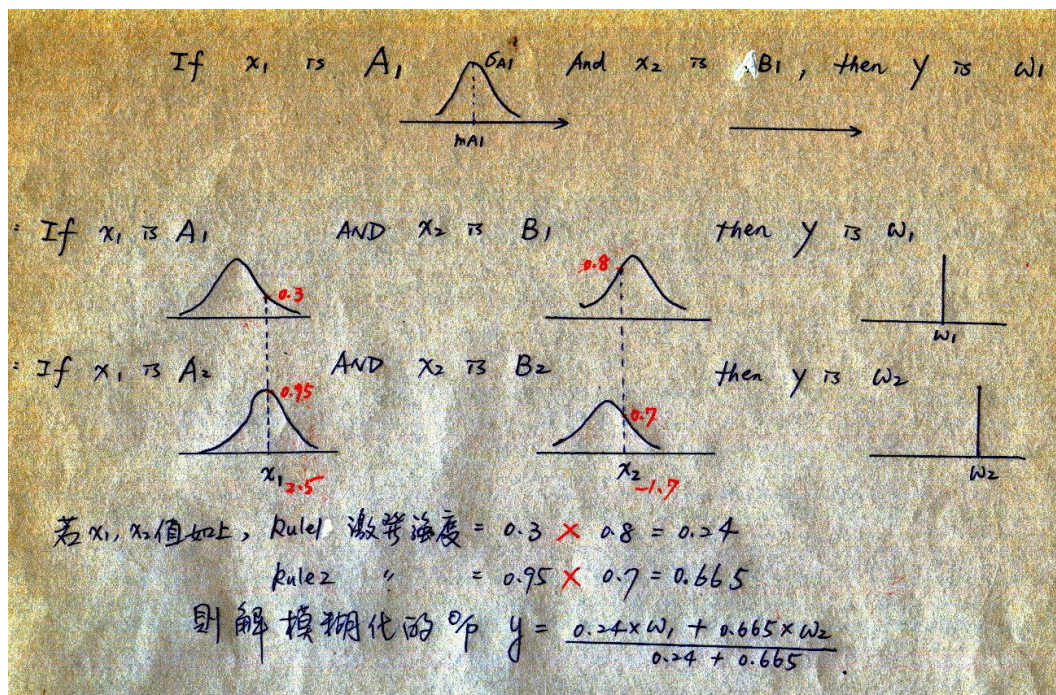 If x₁ is A₁ σA1 And x₂ is B1, then y is ω1
mA1
: If x₁ is A₁ AND x₂ is B₁ then y is ω₁
0.3 0.8
ω₁
: If x₁ is A₂ AND x₂ is B₂ then y is ω₂
0.95 0.7
x₁ 2.5 x₂ -1.7 ω₂
若x₁, x₂值如上, Rule1 激發強度 = 0.3 × 0.8 = 0.24
Rule2 〃 = 0.95 × 0.7 = 0.665
則解模糊化的 o/p y = (0.24×ω₁ + 0.665×ω₂) / (0.24 + 0.665)